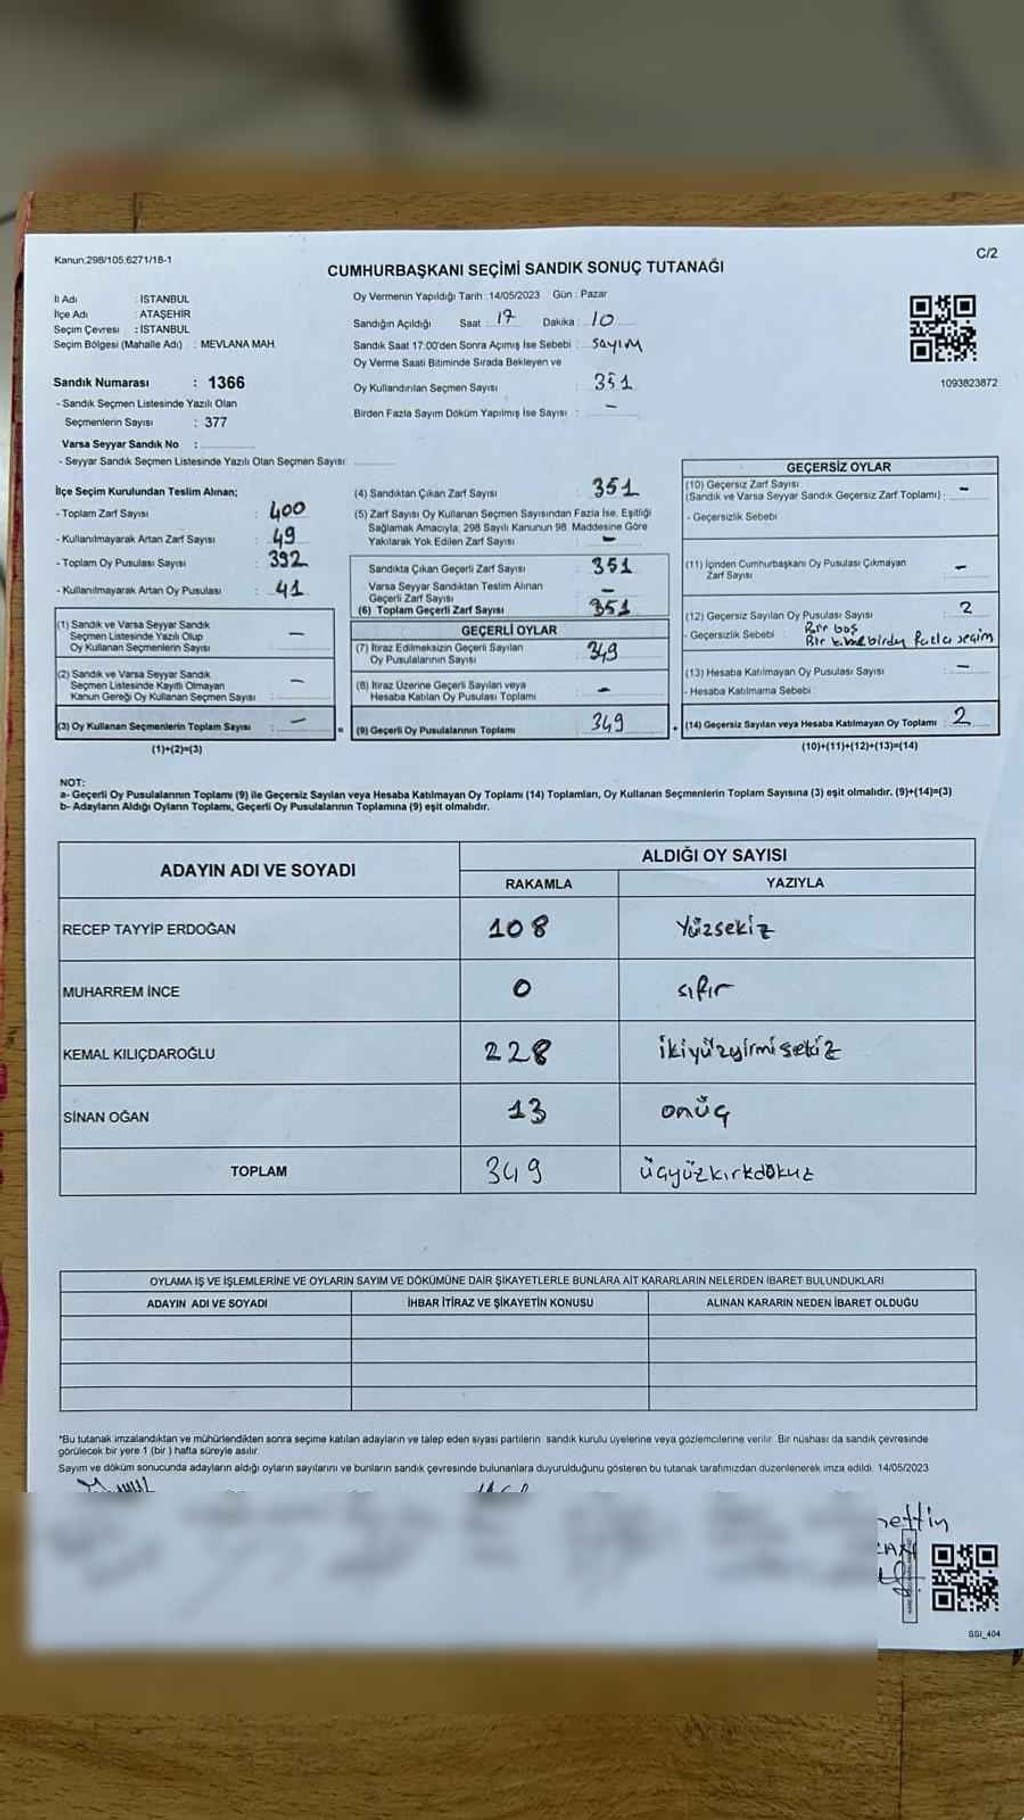 Kanun.298/105.6271/18-1
C/2
CUMHURBAŞKANI SEÇİMİ SANDIK SONUÇ TUTANAĞI
İl Adı : İSTANBUL
İlçe Adı : ATAŞEHİR
Seçim Çevresi : İSTANBUL
Seçim Bölgesi (Mahalle Adı) : MEVLANA MAH.
Sandık Numarası : 1366
- Sandık Seçmen Listesinde Yazılı Olan
Seçmenlerin Sayısı : 377
Varsa Seyyar Sandık No :
- Seyyar Sandık Seçmen Listesinde Yazılı Olan Seçmen Sayısı
Oy Vermenin Yapıldığı Tarih :14/05/2023 Gün : Pazar
Sandığın Açıldığı Saat : 17 Dakika : 10
Sandık Saat 17:00'den Sonra Açımış İse Sebebi : sayım
Oy Verme Saati Bitiminde Sırada Bekleyen ve
Oy Kullandırılan Seçmen Sayısı : 351
Birden Fazla Sayım Döküm Yapılmış İse Sayısı : -
1093823872
İlçe Seçim Kurulundan Teslim Alınan;
- Toplam Zarf Sayısı : 400
- Kullanılmayarak Artan Zarf Sayısı : 49
- Toplam Oy Pusulası Sayısı : 392
- Kullanılmayarak Artan Oy Pusulası : 41
(1) Sandık ve Varsa Seyyar Sandık
Seçmen Listesinde Yazılı Olup
Oy Kullanan Seçmenlerin Sayısı : -
(2) Sandık ve Varsa Seyyar Sandık
Seçmen Listesinde Kayıtlı Olmayan
Kanun Gereği Oy Kullanan Seçmen Sayısı : -
(3) Oy Kullanan Seçmenlerin Toplam Sayısı : -
(1)+(2)=(3)
(4) Sandıktan Çıkan Zarf Sayısı : 351
(5) Zarf Sayısı Oy Kullanan Seçmen Sayısından Fazla İse, Eşitliği
Sağlamak Amacıyla; 298 Sayılı Kanunun 98. Maddesine Göre
Yakılarak Yok Edilen Zarf Sayısı : -
Sandıkta Çıkan Geçerli Zarf Sayısı : 351
Varsa Seyyar Sandıktan Teslim Alınan
Geçerli Zarf Sayısı : -
(6) Toplam Geçerli Zarf Sayısı : 351
GEÇERLİ OYLAR
(7) İtiraz Edilmeksizin Geçerli Sayılan
Oy Pusulalarının Sayısı : 349
(8) İtiraz Üzerine Geçerli Sayılan veya
Hesaba Katılan Oy Pusulası Toplamı : -
= (9) Geçerli Oy Pusulalarının Toplamı : 349
GEÇERSİZ OYLAR
(10) Geçersiz Zarf Sayısı
(Sandık ve Varsa Seyyar Sandık Geçersiz Zarf Toplamı) : -
- Geçersizlik Sebebi
(11) İçinden Cumhurbaşkanı Oy Pusulası Çıkmayan
Zarf Sayısı : -
(12) Geçersiz Sayılan Oy Pusulası Sayısı : 2
- Geçersizlik Sebebi Bir boş
Bir fazla seçim
(13) Hesaba Katılmayan Oy Pusulası Sayısı : -
- Hesaba Katılmama Sebebi
+ (14) Geçersiz Sayılan veya Hesaba Katılmayan Oy Toplamı : 2
(10)+(11)+(12)+(13)=(14)
NOT:
a- Geçerli Oy Pusulalarının Toplamı (9) ile Geçersiz Sayılan veya Hesaba Katılmayan Oy Toplamı (14) Toplamları, Oy Kullanan Seçmenlerin Toplam Sayısına (3) eşit olmalıdır. (9)+(14)=(3)
b- Adayların Aldığı Oyların Toplamı, Geçerli Oy Pusulalarının Toplamına (9) eşit olmalıdır.
ADAYIN ADI VE SOYADI
ALDIĞI OY SAYISI
RAKAMLA YAZIYLA
RECEP TAYYİP ERDOĞAN 108 Yüzsekiz
MUHARREM İNCE 0 sıfır
KEMAL KILIÇDAROĞLU 228 ikiyüzyirmisekiz
SİNAN OĞAN 13 onüç
TOPLAM 349 üçyüzkırkdokuz
OYLAMA İŞ VE İŞLEMLERİNE VE OYLARIN SAYIM VE DÖKÜMÜNE DAİR ŞİKAYETLERLE BUNLARA AİT KARARLARIN NELERDEN İBARET BULUNDUKLARI
ADAYIN ADI VE SOYADI İHBAR İTİRAZ VE ŞİKAYETİN KONUSU ALINAN KARARIN NEDEN İBARET OLDUĞU
*Bu tutanak imzalandıktan ve mühürlendikten sonra seçime katılan adayların ve talep eden siyasi partilerin sandık kurulu üyelerine veya gözlemcilerine verilir. Bir nüshası da sandık çevresinde
görülecek bir yere 1 (bir ) hafta süreyle asılır.
Sayım ve döküm sonucunda adayların aldığı oyların sayılarını ve bunların sandık çevresinde bulunanlara duyurulduğunu gösteren bu tutanak tarafımızdan düzenlenerek imza edildi. 14/05/2023
nettin
SGI_404